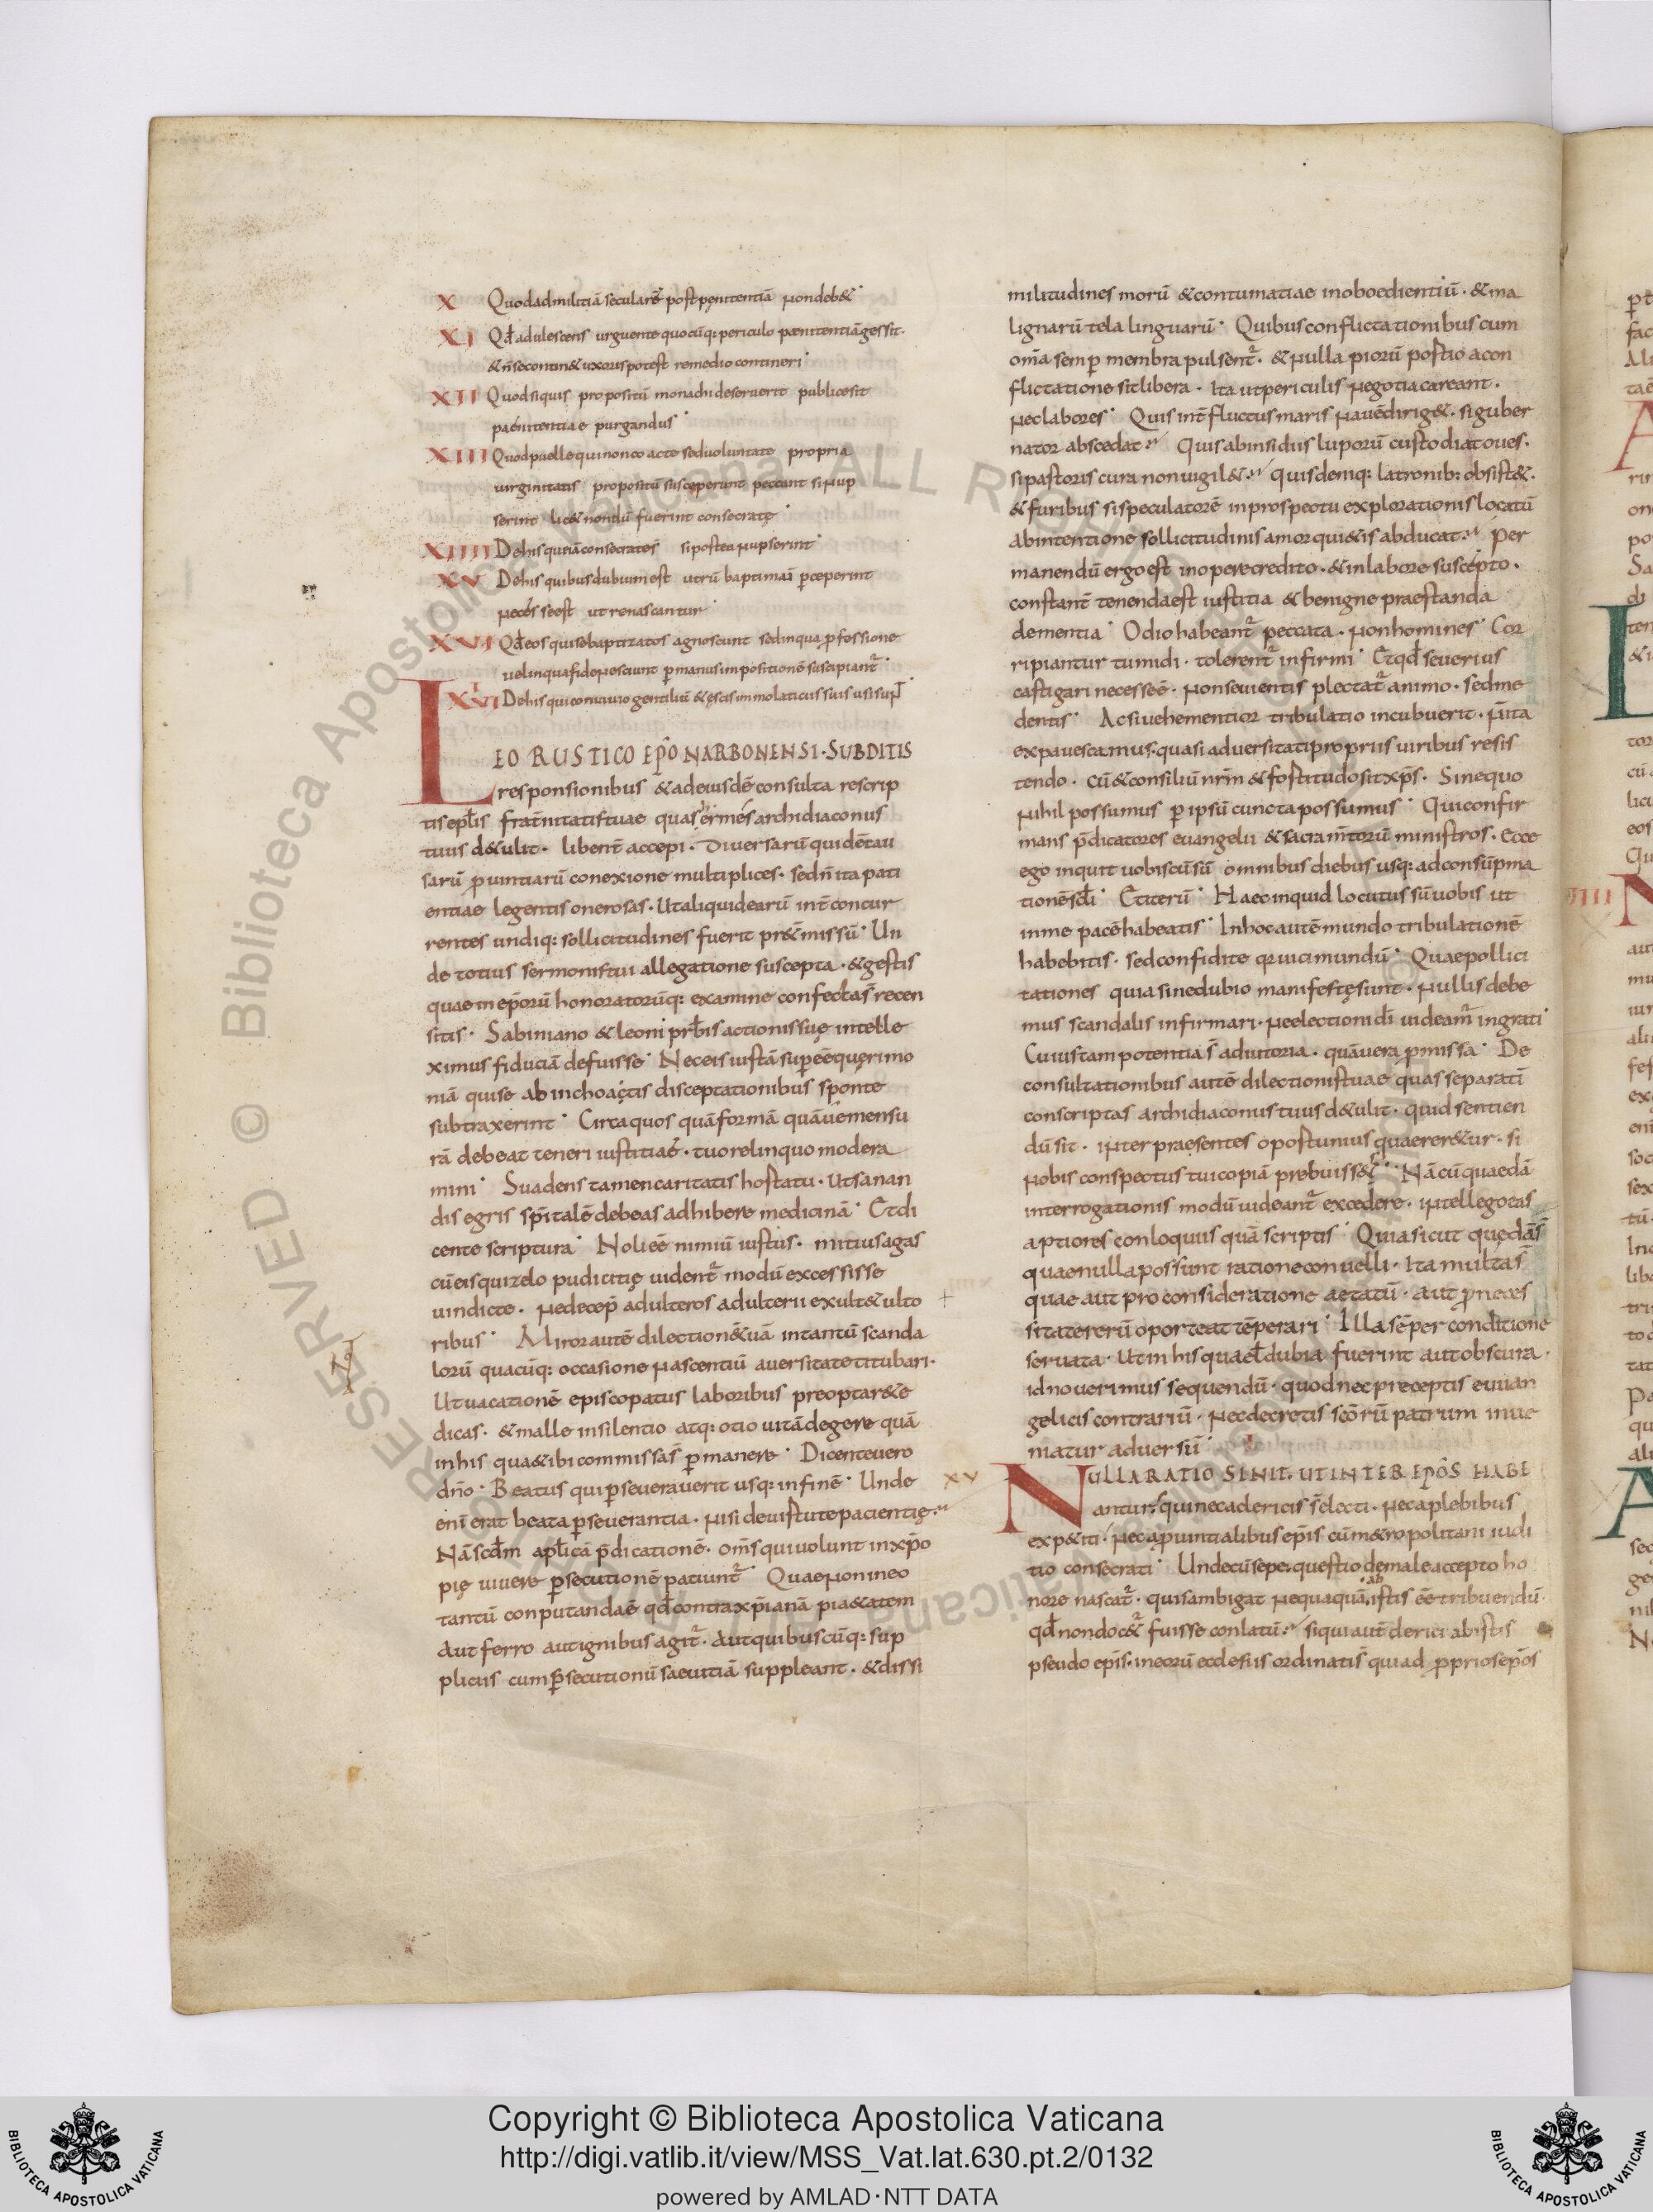 X Quod ad militiā secularē post penitentiā non deb&
XI Qđ adulescens urguente quocūq: periculo paenitentiā gessit.
& ñ se contin& uxoris potest remedio contineri
XII Quod siquis propositū monachi deseruerit publice sit
paenitentiae purgandus
XIII Quod puelle qui non coacte sed voluntate propria
virginitatis propositū susceperunt peccant si nup
serint lic& nondū fuerint consecrate
XIIII De his qui iā consecrates si postea nupserint
XV De his quibus dubium est utrū baptimaī perceperint
necēs se est ut renascantur
XVI Qđ eos qui se baptizatos agnoscunt sed in qua pfossione
vel in qua fide nesciunt p manus impositionē suscipiant
XVII De his qui convivio gentiliū & escis immolaticiis suis usi sup̄
LEO RUSTICO EP̄O NARBONENSI · SUBDITIS
responsionibus & ad eiusdē consulta rescrip
tis eplis fraternitatis tuae quas ermes archidiaconus
tuus d&ulit · libent accepi · Diversarū quidē cau
sarū pvintiarū conexione multiplices · sed ñ ita pati
entiae legentis onerosas · Ut aliquid earū int̄ concur
rentes undiq: sollicitudines fuerit pr&missū · Un
de totius sermonis tui allegatione suscepta · & gestis
quae in ep̄orū honoratorūq: examine confecta s̄ recen
sitis · Sabiniano & leoni prb̄is actionis sue intelle
ximus fidutiā defuisse · Nec eis iustā superēē querimo
niā qui se ab inchoactis disceptationibus sponte
subtraxerint · Circa quos quā formā quāve mensu
rā debeat teneri iustitiae · tuo relinquo modera
mini · Suadens tamen caritatis hostatu · Ut sanan
dis egris sp̄italē debeas adhibere medicinā · Et di
cente scriptura · Noli eē nimiū iustus · mitius agas
cū eis qui zelo pudicitie vident̄ modū excessisse
vindicte · ne decep̄ adulteros adulterii exult& ulto
ribus · Miror autē dilectionē tuā in tantū scanda
lorū quacūq: occasione nascentiū aversitate titubari ·
Ut vacationē episcopatus laboribus preoptar& te
dicas · & malle in silentio atq: otio vitā degere quā
in his quae tibi commissa s̄ p manere · Dicente vero
dn̄o · Beatus qui pseveraverit usq: in finē · Unde
enī erat beata pseverantia · nisi de virtute pacientie
Nā scdm̄ aplicā p̄dicationē · om̄s qui volunt in xp̄o
pie vivere psecutionē patiunt̄ · Quae non in eo
tantū conputanda ē qđ contra xp̄ianā pi&atem
Aut ferro aut ignibus agit̄ · Aut quibuscūq: sup
pliciis cum psecutionū saevitiā suppleant · & dissi
militudines morū & contumatiae inoboedientiū · & ma
lignarū tela linguarū · Quibus conflictationibus cum
om̄a semp membra pulsent̄ · & nulla piorū postio a con
flictatione sit libera · Ita ut periculis negotia careant ·
nec labores · Quis int̄ fluctus maris navē dirig& · si guber
nator abscedat · Quis ab insidiis luporū custodiat oves ·
si pastoris cura non vigil& · Quis demq: latronib: obsist& ·
& furibus si speculatorē in prospectu explorationis locatū
ab intentione sollicitudinis amor qui&is abducat · Per
manendū ergo est in opere credito · & in labore suscepto ·
constant̄ tenenda est iustitia & benigne praestanda
clementia · Odio habeant̄ peccata · non homines · Cor
ripiantur tumidi · tolerent̄ infirmi · Et qđ severius
castigari necesse ē · non sevientis plectat̄ animo · sed me
dentis · Ac si vehementior tribulatio incubuerit · n̄ ita
expavescamus · quasi adversitati propriis viribus resis
tendo · cū & consiliū nrm̄ & fostitudo sit xp̄s · Sine quo
nihil possumus p ipsū cuncta possumus · Qui confir
mans p̄dicatores evangelii & sacram̄torū ministros · Ecce
ego inquit vobiscū sū omnibus diebus usq: ad consūpma
tionē sc̄li · Et iterū · Haec inquid locutus sū vobis ut
in me pacē habeatis · In hoc autē mundo tribulationē
habebitis · sed confidite q̄ vici mundū · Quae pollici
tationes quia sine dubio manifeste sunt · nullis debe
mus scandalis infirmari · ne electioni dī videam̄ ingrati
Cuius tam potentia s̄ adiutoria · quā vera p missa · De
consultationibus autē dilectionis tuae quas separati
conscriptas archidiaconus tuus d&ulit · quid sentien
dū sit · inter praesentes opostunius quaerer&ur · si
nobis conspectus tui copiā prebuiss& · Nā cū quaedā
interrogationis modū videant̄ excedere · intellego eas
aptiores conloquiis quā scriptis · Quia sicut quedā s̄
quae nulla possunt ratione convelli · Ita multa s̄
quae aut pro consideratione aetatū · aut p neces
sitate rerū oporteat tēperari · Illa sēper conditione
servata · Ut in his quae vel dubia fuerint aut obscura ·
id noverimus sequendū · quod nec preceptis evvan
gelicis contrariū · nec decretis sc̄orū patrum inve
niatur adversū
XV NULLA RATIO SINIT · UT INTER EP̄OS HABE
antur qui nec a clericis s̄ electi · nec a plebibus
exp&iti · nec a pvintialibus ep̄is cū m&ropolitani iudi
tio consecrati · Unde cū sepe questio de male accepto ho
nore nascat̄ · quis ambigat nequaquā ab istis eē tribuendū
qđ non doc&̄ fuisse conlatū · siqui aut̄ clerici ab istis
pseudo ep̄is · in eorū ecclesiis ordinati s̄ qui ad pprios ep̄os
Copyright © Biblioteca Apostolica Vaticana
http://digi.vatlib.it/view/MSS_Vat.lat.630.pt.2/0132
powered by AMLAD·NTT DATA
BIBLIOTECA APOSTOLICA VATICANA
BIBLIOTECA APOSTOLICA VATICANA